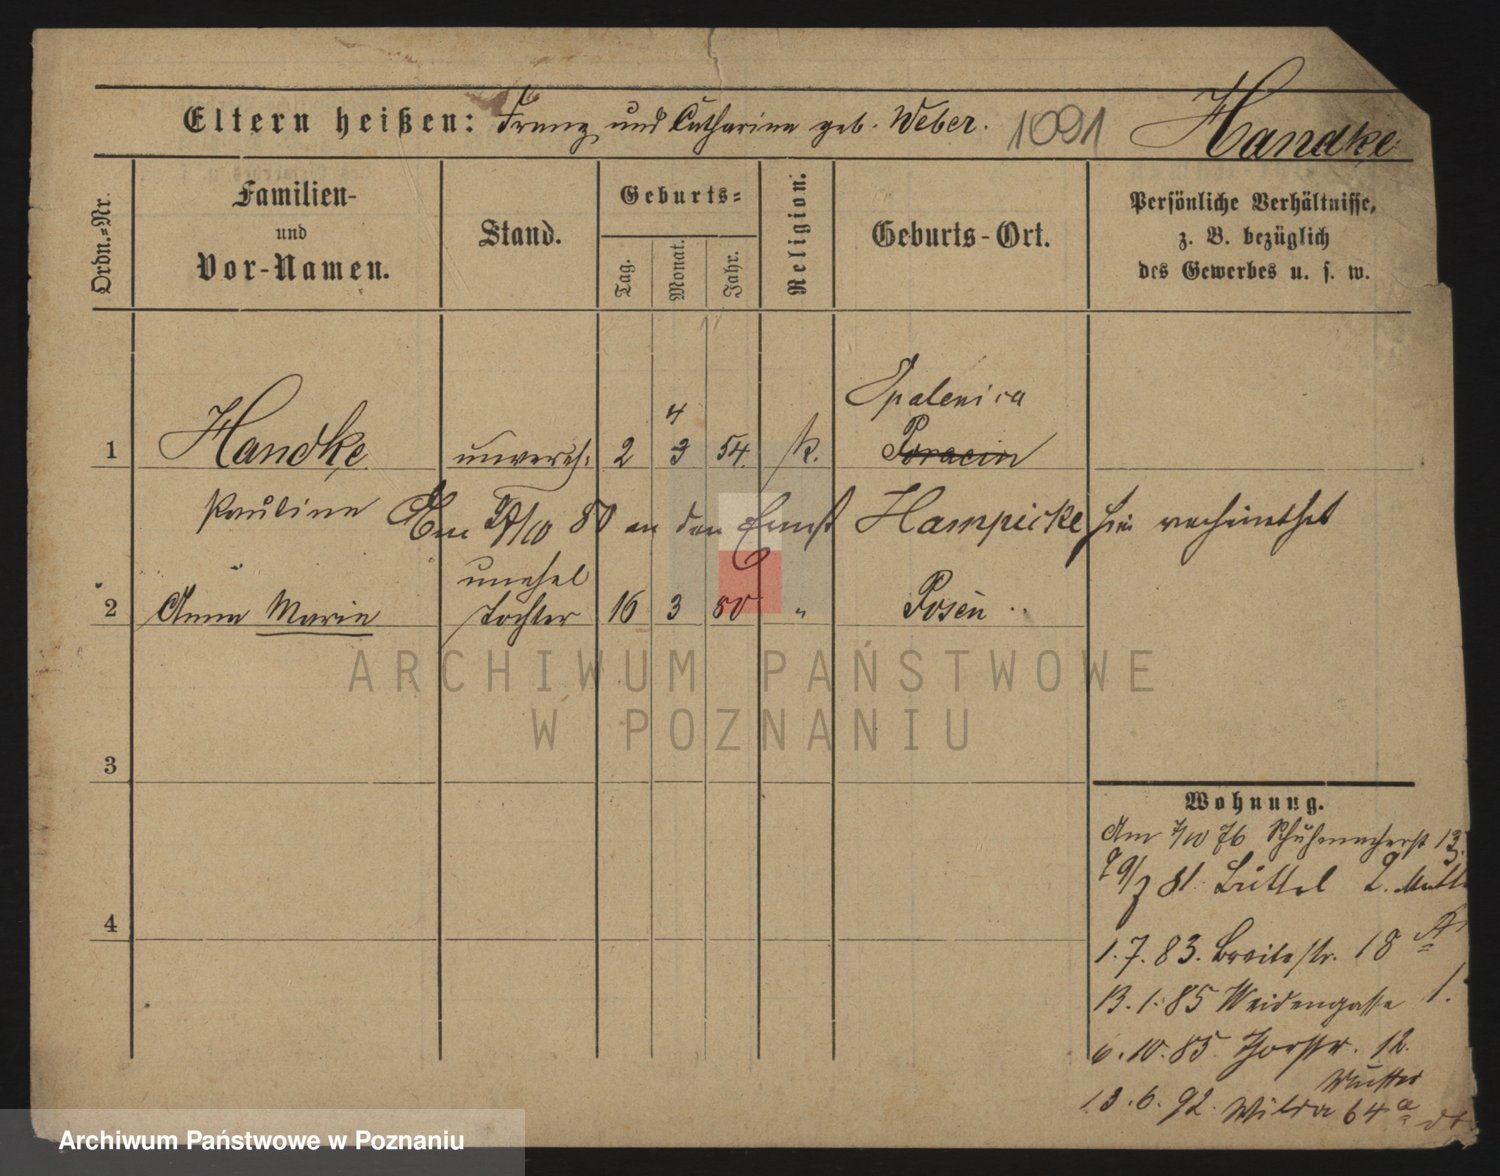 Eltern heißen: Franz und Catharina geb. Weber. 1091 Handke
Ordn.=Nr.
Familien-
und
Vor-Namen.
Stand.
Geburts=
Tag.
Monat.
Jahr.
Religion.
Geburts-Ort.
Persönliche Verhältnisse,
z. B. bezüglich
des Gewerbes u. s. w.
Opalenica
4
1 Handke unvereh: 2 3 54. k. Poracin
Pauline Am /10 80 an den Ernst Hampicke hier verheirathet
unehel
2 Anna Marie Tochter 16 3 80 " Posen
ARCHIWUM PAŃSTWOWE
W POZNANIU
3
Wohnung.
Am 7/10 76 Schuhmacherst 13
81. Büttel 2.
4
1.7.83. Breitestr. 18
13.1.85 Weidengasse 1.
6.10.85. Thorstr. 12.
Mutter
13.6.92. Wilda 64a
Archiwum Państwowe w Poznaniu